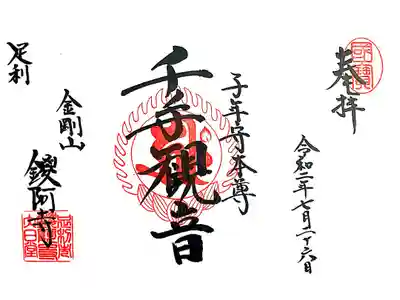 奉拝
令和二年七月二十六日
子年守本尊
千手観音
金剛山
鑁阿寺
足利